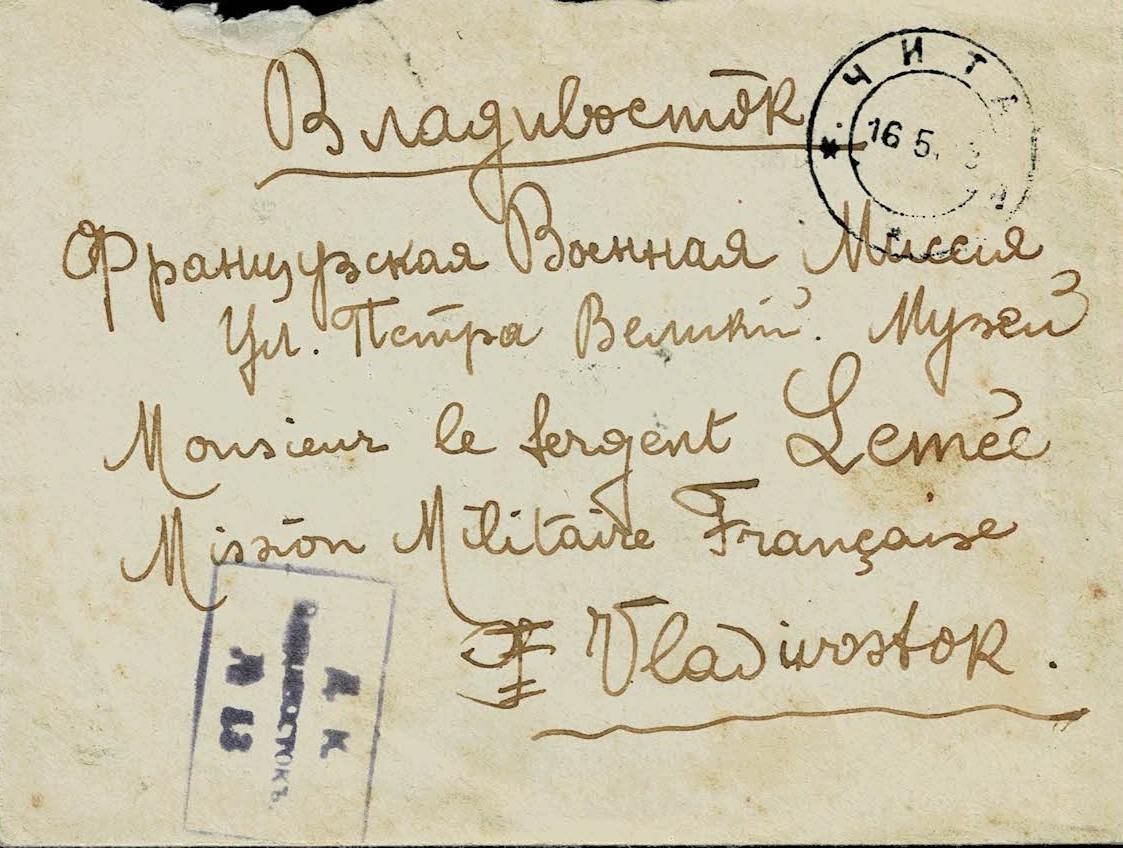 Владивосток
ЧИТА
16 5.
Французская Военная Миссия
Ул. Петра Великій. Музей
Monsieur le Sergent Lemée
Mission Militaire Française
Vladivostok.
Д К
ВЛАДИВОСТОКЪ